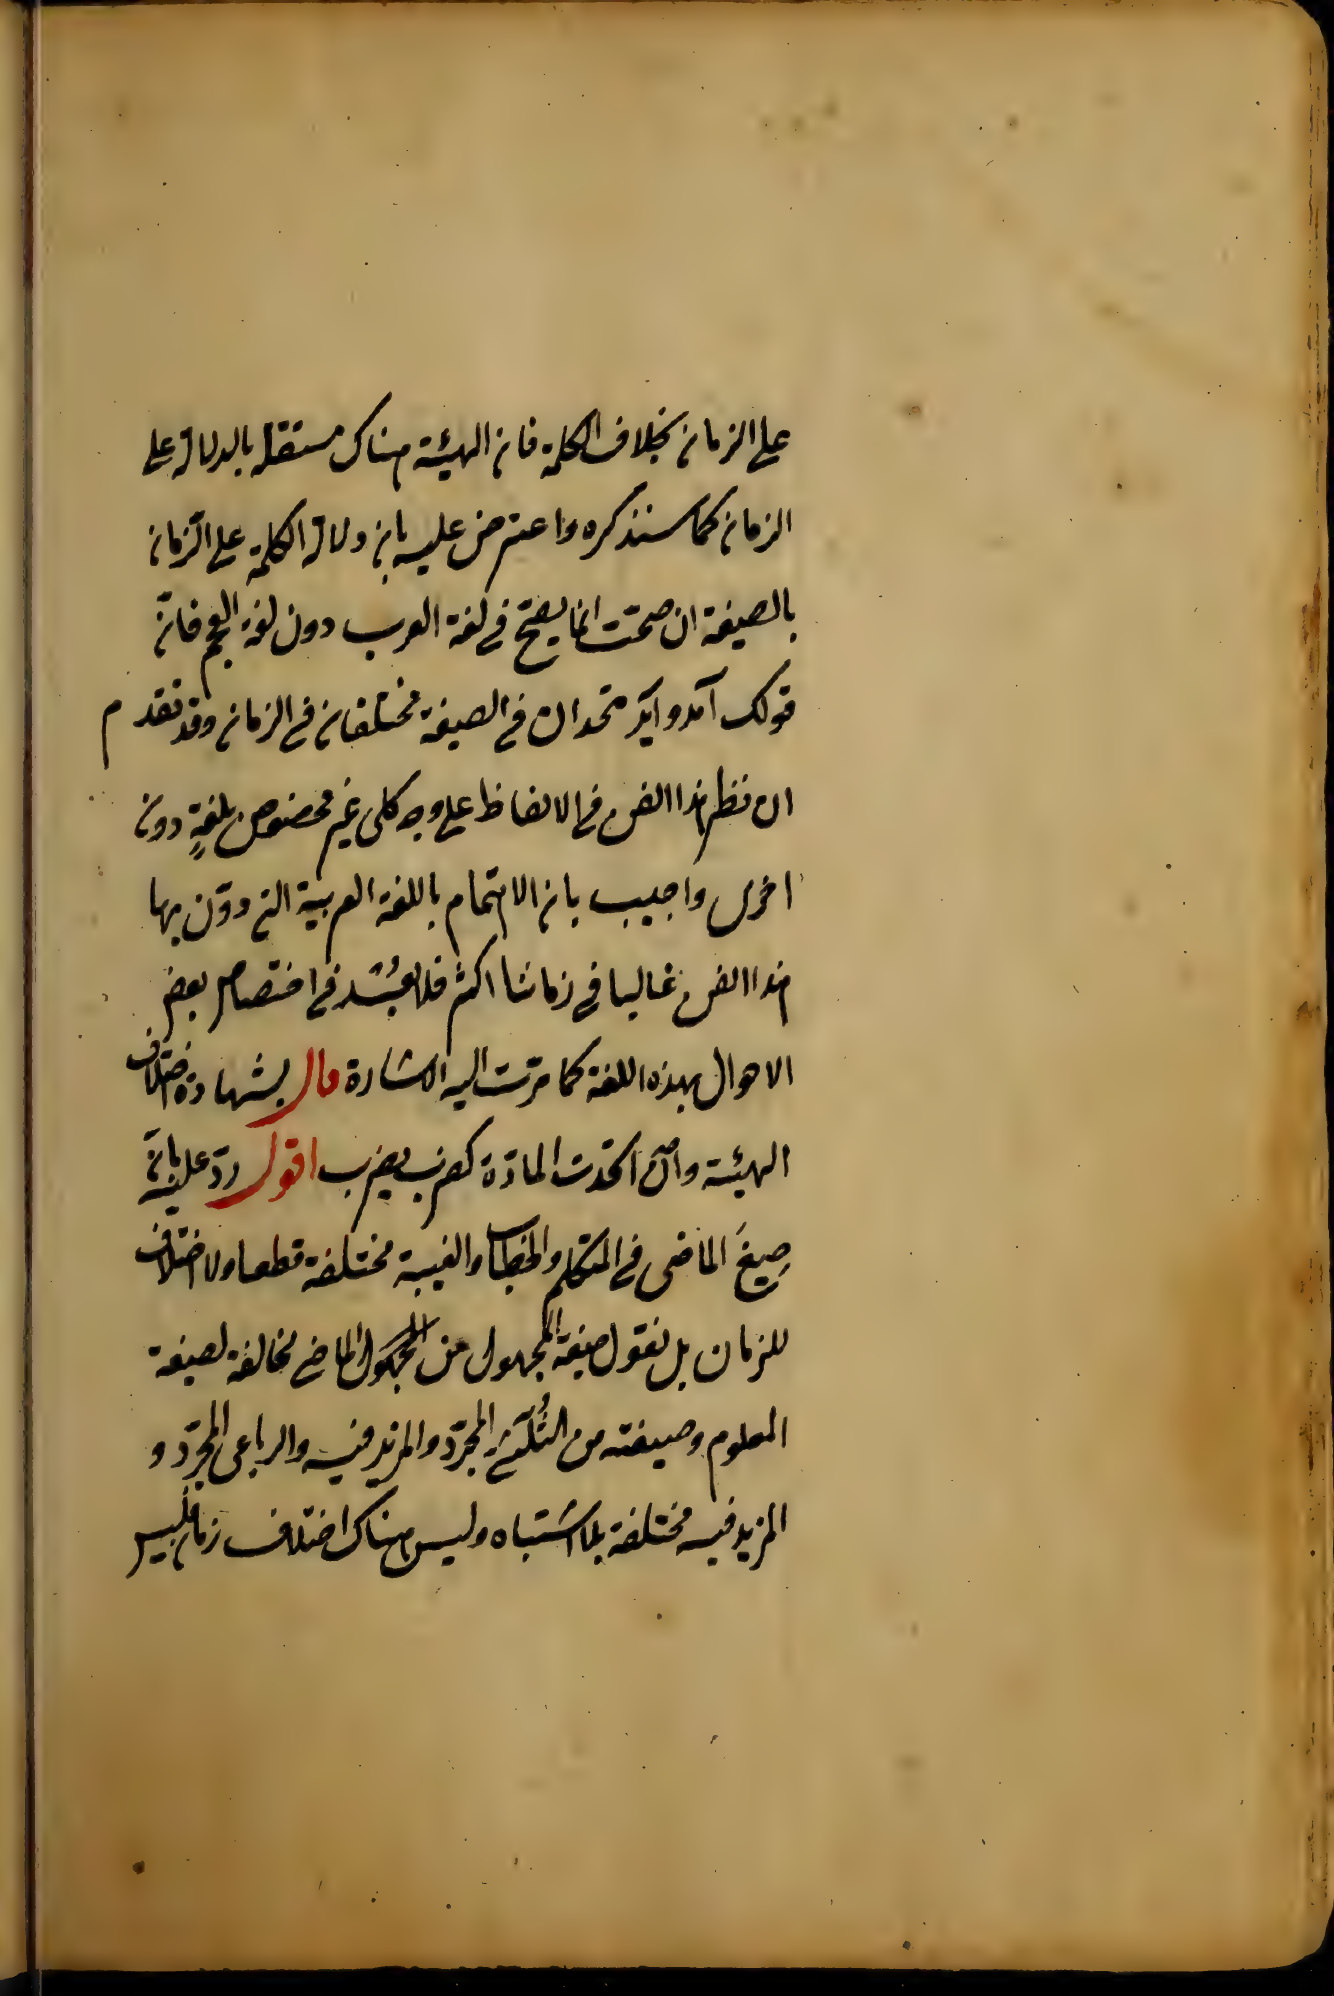 على الزمان بخلاف الكلمة فان الهيئة هناك مستقلة بالدلالة على
الزمان كما سنذكره واعترض عليه بان دلالة الكلمة على الزمان
بالصيغة ان صحت انما يصح في لغة العرب دون لغة العجم فانّ
قولك آمد وآيد متحدان في الصيغة مختلفان في الزمان وقد تقدم
ان نظر هذا الفن في الالفاظ على وجه كلى غير مخصوص بلغةٍ دون
اخرى واجيب بان الاهتمام باللغة العربية التي دوّن بها
هذا الفن غالبا في زماننا اكثر فلا بُعْد في اختصاص بعض
الاحوال بهذه اللغة كما مرّت اليه الاشارة قال بشهادة اختلاف
الهيئة وان اتحدت المادّة كضرب يضرب اقول ردّ عليه بانّ
صِيغَ الماضى في المتكلم والخطاب والغيبة مختلفة قطعا ولا اختلاف
للزمان بل نقول صيغة المجهول من الماضي مخالفة لصيغة
المعلوم وصيغته من الثُلاثي المجرّد والمزيد فيه والرباعى المجرّد و
المزيد فيه مختلفة بلا اشتباه وليس هناك اختلاف زمان فليس